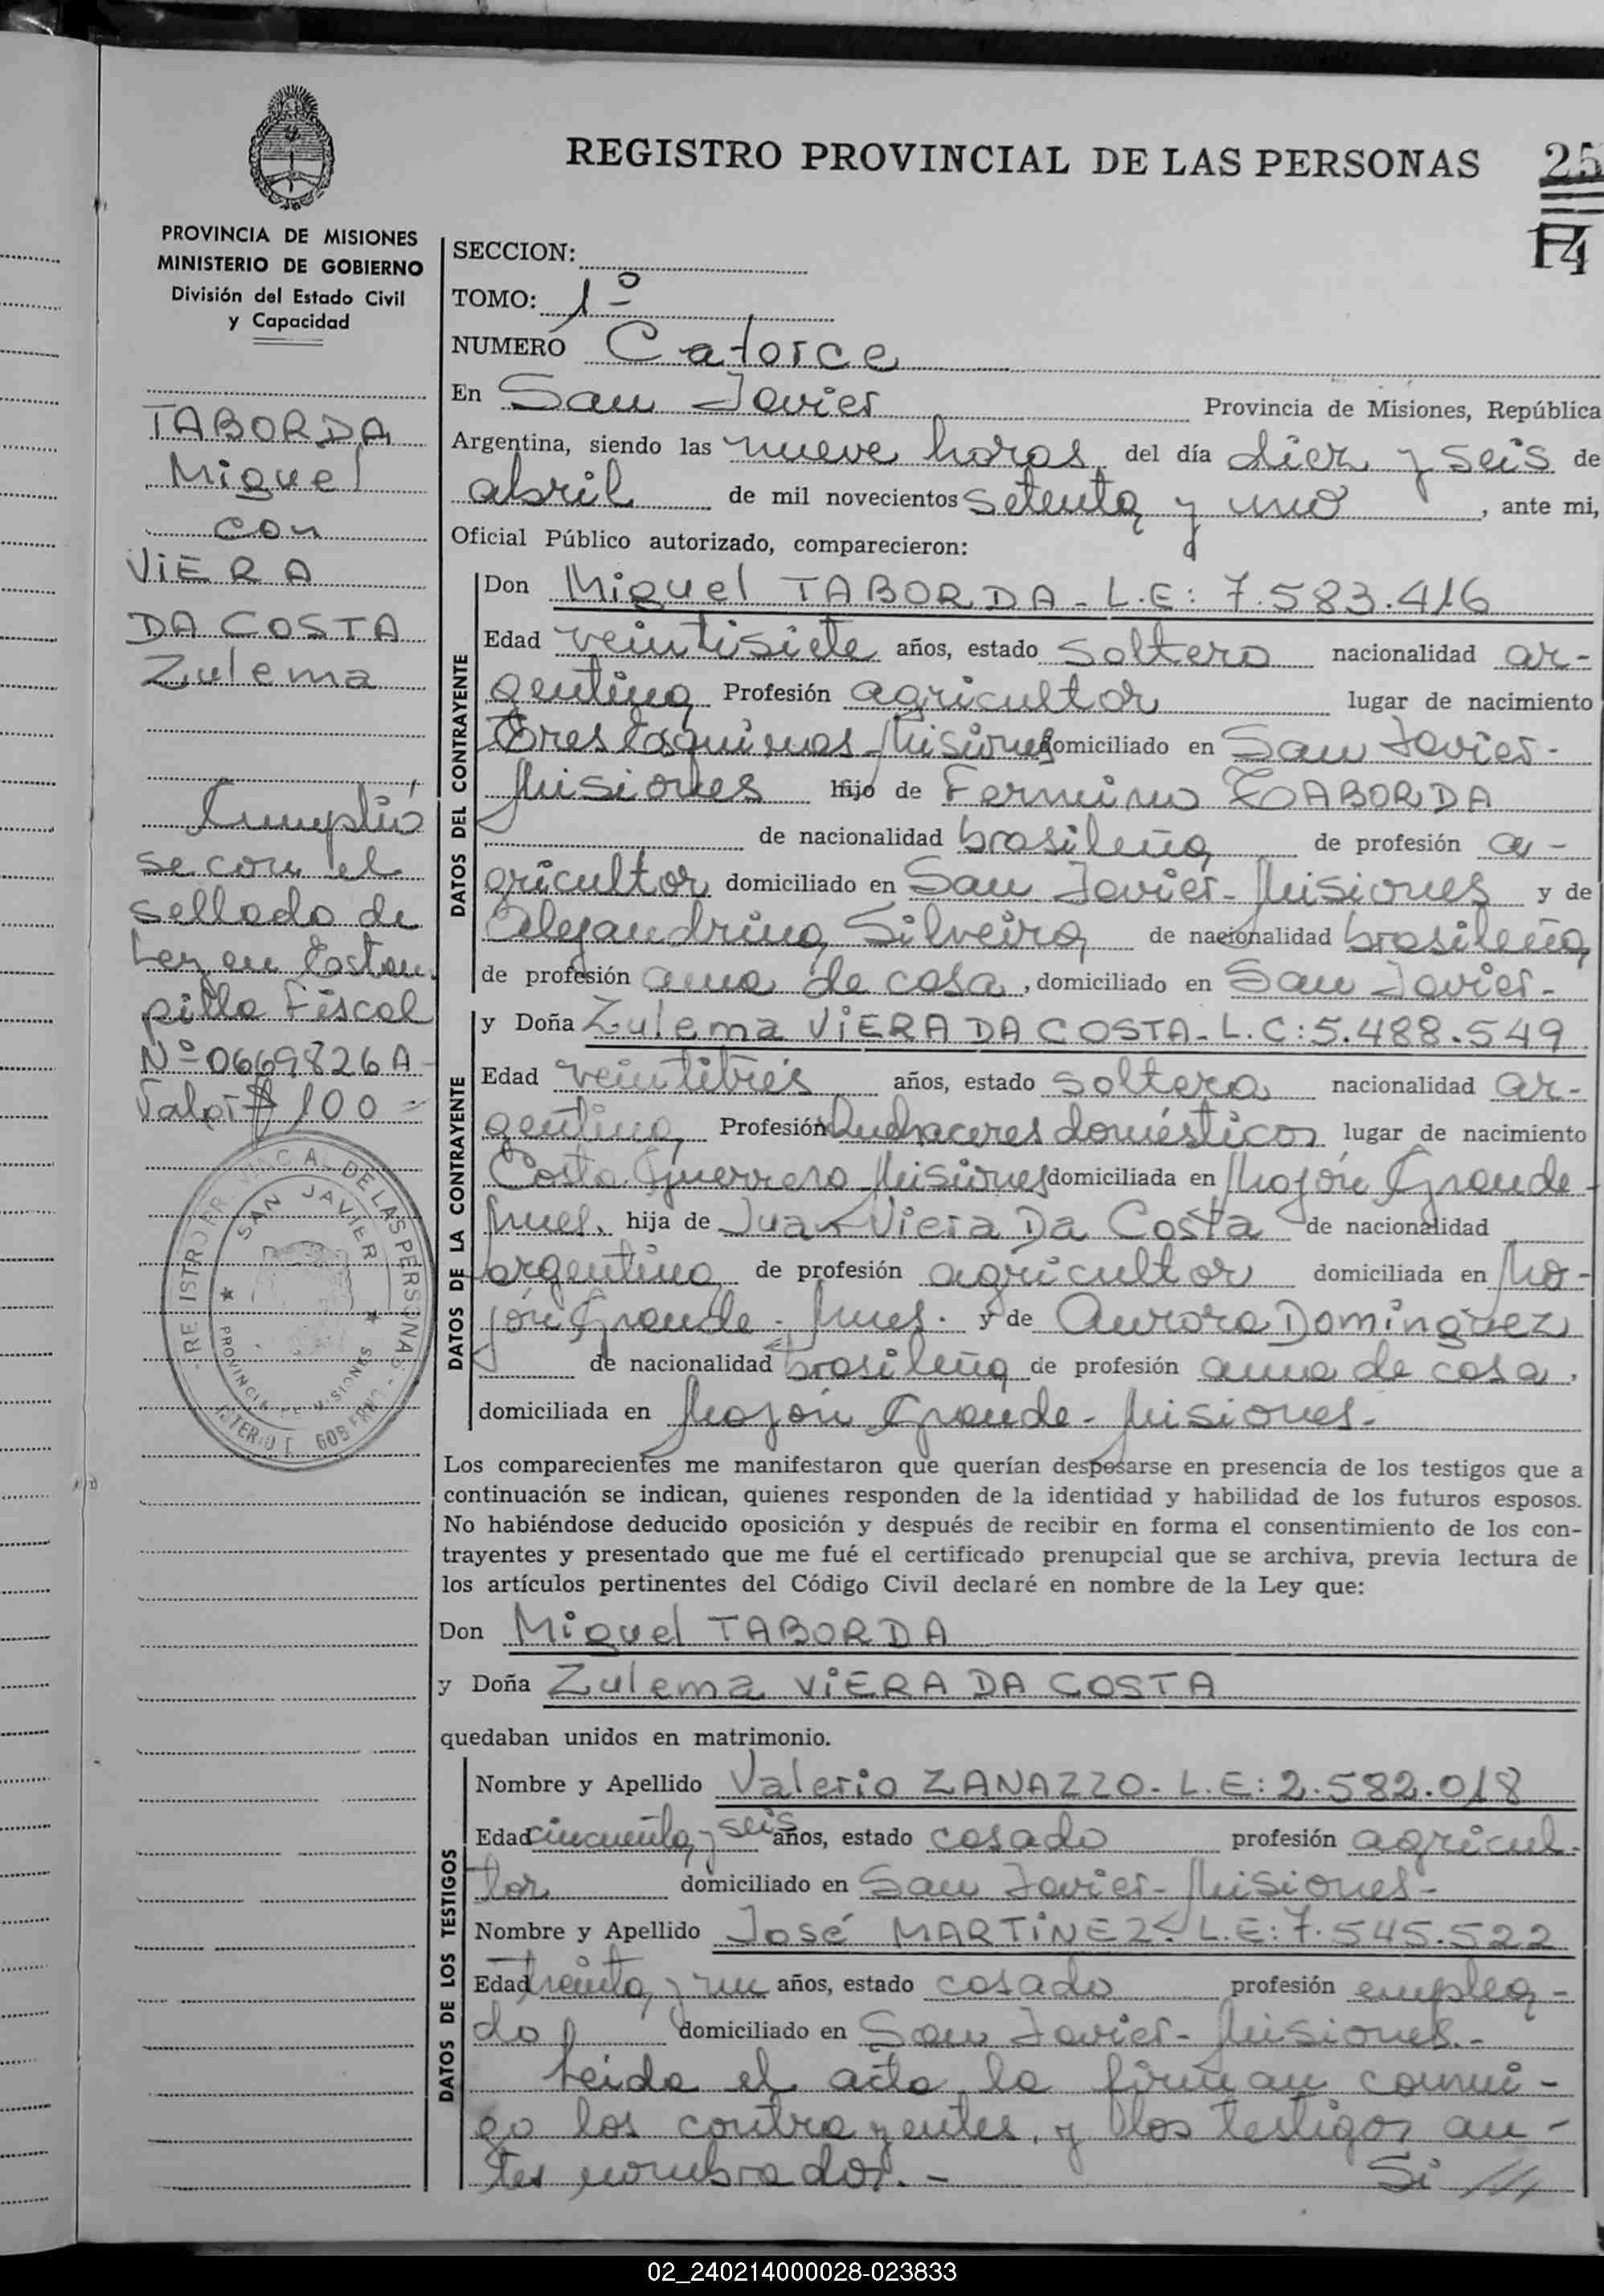 REGISTRO PROVINCIAL DE LAS PERSONAS
25
14
PROVINCIA DE MISIONES
MINISTERIO DE GOBIERNO
División del Estado Civil
y Capacidad
TABORDA
Miguel
con
ViERA
DA COSTA
Zulema
Cumplió
se con el
sellado de
Ley en Estam
pilla Fiscal
Nº 0669826 A
Valor $ 100 =
SAN JAVIER
PROVINCIA DE MISIONES
SECCION:
TOMO: 1º
NUMERO Catorce
En San Javier Provincia de Misiones, República
Argentina, siendo las nueve horas del día diez y seis de
abril de mil novecientos setenta y uno, ante mi,
Oficial Público autorizado, comparecieron:
DATOS DEL CONTRAYENTE
Don Miguel TABORDA - L.E: 7.583.416
Edad veintisiete años, estado soltero nacionalidad ar-
gentina Profesión agricultor lugar de nacimiento
Tres Esquinas Misiones domiciliado en San Javier-
Misiones hijo de Fermino TABORDA
de nacionalidad brasileña de profesión a-
gricultor domiciliado en San Javier-Misiones y de
Alejandrina Silveira de nacionalidad brasileña
de profesión ama de casa, domiciliado en San Javier-
DATOS DE LA CONTRAYENTE
y Doña Zulema ViERA DA COSTA - L.C: 5.488.549
Edad veintitres años, estado soltera nacionalidad ar-
gentina Profesión quehaceres domésticos lugar de nacimiento
Costa Guerrero Misiones domiciliada en Mojón Grande-
Mnes. hija de Juan Viera Da Costa de nacionalidad
argentina de profesión agricultor domiciliada en Mo-
jón Grande - Mnes. y de Aurora Dominguez
de nacionalidad brasileña de profesión ama de casa,
domiciliada en Mojón Grande - Misiones.
Los comparecientes me manifestaron que querían desposarse en presencia de los testigos que a
continuación se indican, quienes responden de la identidad y habilidad de los futuros esposos.
No habiéndose deducido oposición y después de recibir en forma el consentimiento de los con-
trayentes y presentado que me fué el certificado prenupcial que se archiva, previa lectura de
los artículos pertinentes del Código Civil declaré en nombre de la Ley que:
Don Miguel TABORDA
y Doña Zulema ViERA DA COSTA
quedaban unidos en matrimonio.
DATOS DE LOS TESTIGOS
Nombre y Apellido Valerio ZANAZZO - L.E: 2.582.018
Edad cincuenta y seis años, estado casado profesión agricul-
tor domiciliado en San Javier-Misiones-
Nombre y Apellido José MARTiNEZ. L.E: 7.545.522
Edad treinta y un años, estado casado profesión emplea-
do domiciliado en San Javier-Misiones.-
Leida el acta la firman conmi-
go los contrayentes, y los testigos an-
tes nombrados.- Si ///
02_240214000028-023833